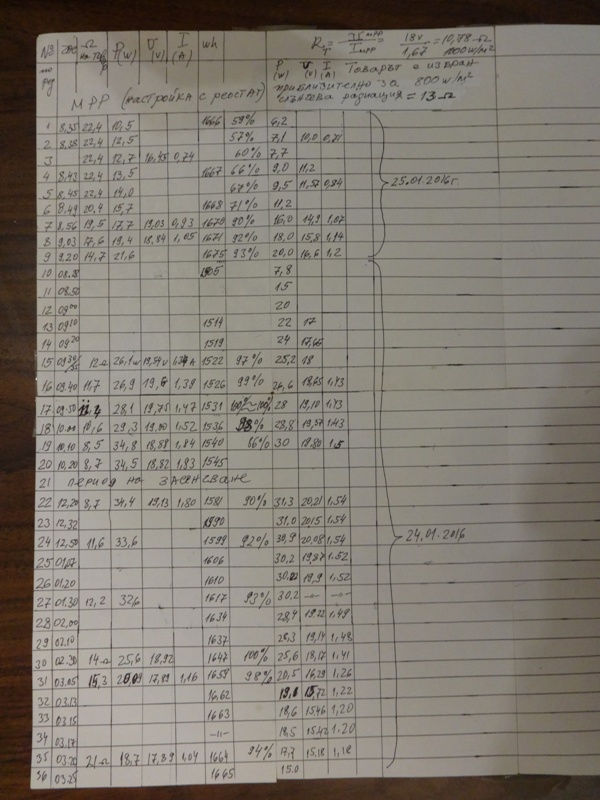 № по ред час Ω P(W) U (V) I (A) wh
R = U mpp / I mpp = 18v / 1,67 = 10,78 Ω 1000 w/m²
P (W) U (V) I (A) Товарът е избран
приблизително за 800 w/m²
слънчева радиация = 13 Ω
МРР (настройка с реостат)
1 8,35 22,4 10,5 1666 59% 6,2
2 8,38 22,4 12,5 57% 7,1 10,0 0,71
3 22,4 12,7 16,45 0,74 60% 7,7
4 8,43 22,4 13,5 1667 66% 9,0 11,2
5 8,45 22,4 14,0 67% 9,5 11,57 0,84
6 8,49 20,4 15,7 1668 71% 11,2
7 8,56 19,5 17,7 19,03 0,93 1670 90% 16,0 14,9 1,07
8 9,03 17,6 19,4 18,84 1,05 1671 92% 18,0 15,8 1,14
9 9,20 14,7 21,6 1675 93% 20,0 16,6 1,2
25.01.2016г.
10 08.38 1505 7,8
11 08.50 15
12 09 00 20
13 09 10 1514 22 17
14 09 20 1519 24 17,65
15 09 12 Ω 26,1 w 19,54 v 1522 97% 25,2 18
16 09.40 11,7 26,9 1,39 1526 99% 26,6 18,65 1,43
17 09.50 28,1 19,75 1,47 1531 100%~100% 28 19,10 1,43
18 10.00 10,6 29,3 19,00 1.52 1536 98% 28,8 19,37 1.43
19 10,10 8,5 34,8 18,58 1,84 1540 86% 30 19,80 1,5
20 10,20 8,7 34,5 18,82 1,83 1545
21 период на засенсване
22 12,20 8,7 34,4 19,13 1,80 1581 90% 31,3 20,21 1.54
23 12,32 1590 31,0 2015 1,54
24 12,50 11,6 33,6 1599 92% 30,9 20,08 1,54
25 01.07 1606 30,2 19,87 1.52
26 01.20 1610 19,9 1,52
27 01.30 12,2 32,6 1617 93% 30,2 -"- -"-
28 02,00 1634 28,4 19,22 1,49
29 02.10 1637 28,3 19,14 1,48
30 02.30 14 Ω 25,6 18,92 1647 100% 25,6 18,17 1.41
31 03.05 15,3 17,89 1,16 1659 98% 20,5 16,29 1.26
32 03.13 16,62 1,22
33 03.15 1663 18,6 15,46 1,20
34 03.17 -"- 18,5 15,42 1.20
35 03.20 21 Ω 18,7 17,89 1,04 1664 94% 15,18 1,18
36 03.25 1665 15.0
24.01.2016